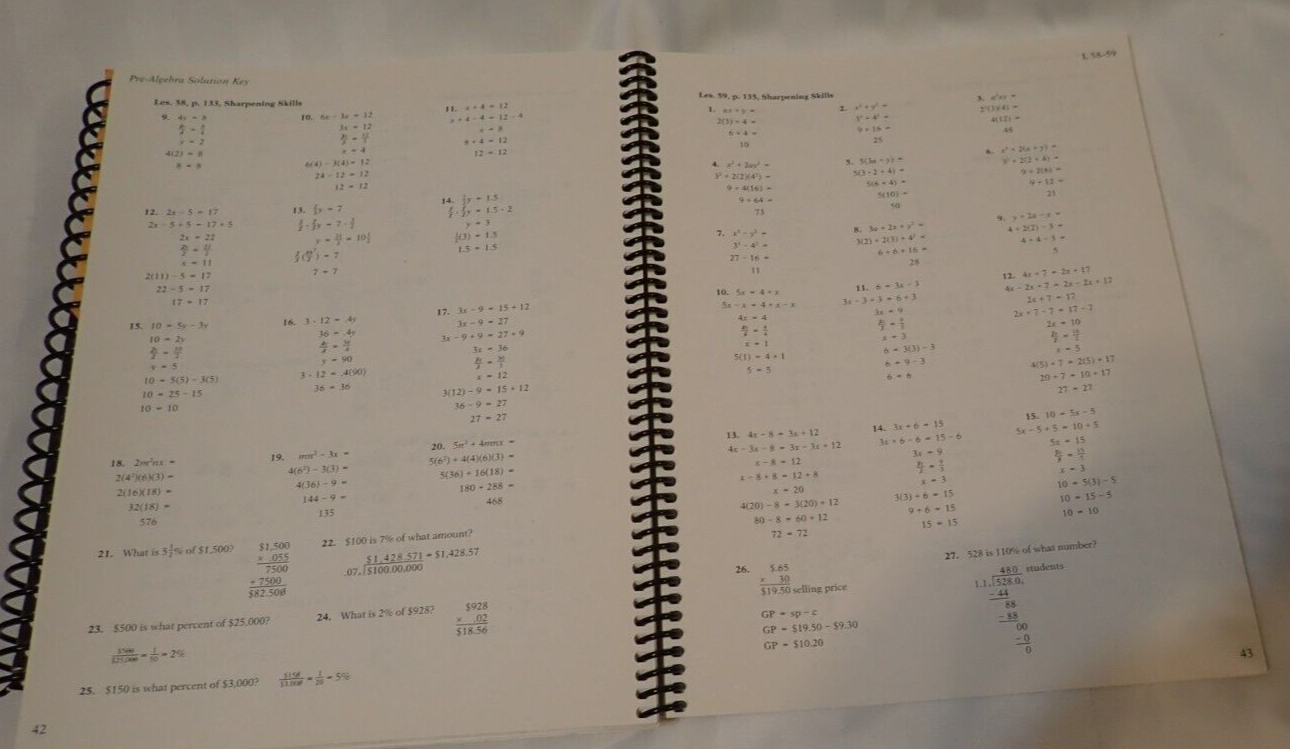 Pre-Algebra Solution Key
Les. 58, p. 133, Sharpening Skills
9. 4y = 8
y = 2
4(2) = 8
8 = 8
10. 6x - 3x = 12
3x = 12
x = 4
6(4) - 3(4) = 12
24 - 12 = 12
12 = 12
11. x + 4 = 12
x + 4 - 4 = 12 - 4
x = 8
8 + 4 = 12
12 = 12
12. 2x - 5 = 17
2x - 5 + 5 = 17 + 5
2x = 22
x = 11
2(11) - 5 = 17
22 - 5 = 17
17 = 17
13.
7 = 7
14.
y = 3
1.5 = 1.5
15. 10 = 5y - 3y
10 = 2y
y = 5
10 = 5(5) - 3(5)
10 = 25 - 15
10 = 10
16. 3 · 12 = .4y
36 = .4y
y = 90
3 · 12 = .4(90)
36 = 36
17. 3x - 9 = 15 + 12
3x - 9 = 27
3x - 9 + 9 = 27 + 9
3x = 36
x = 12
3(12) - 9 = 15 + 12
36 - 9 = 27
27 = 27
18.
2(4²)(6)(3) =
2(16)(18) =
32(18) =
576
19. mn² - 3x =
4(6²) - 3(3) =
4(36) - 9 =
144 - 9 =
135
20. 5n² + 4mnx =
5(6²) + 4(4)(6)(3) =
5(36) + 16(18) =
180 + 288 =
468
21. What is 5½% of $1,500?
$1,500
× .055
7500
+ 7500
$82.500
22. $100 is 7% of what amount?
$1,428.571 = $1,428.57
.07.⟌$100.00.000
23. $500 is what percent of $25,000?
$500/$25,000 = 1/50 = 2%
24. What is 2% of $928?
$928
× .02
$18.56
25. $150 is what percent of $3,000?
$150/$3,000 = 1/20 = 5%
42
L 58–59
Les. 59, p. 135, Sharpening Skills
1.
2(3) + 4 =
6 + 4 =
10
2. x² + y² =
3² + 4² =
9 + 16 =
25
3.
4(12) =
48
4.
3² + 2(2)(4²) =
9 + 4(16) =
9 + 64 =
73
5. 5(3a + y) =
5(3 · 2 + 4) =
5(6 + 4) =
5(10) =
50
6. x² + 2(a + y) =
3² + 2(2 + 4) =
9 + 2(6) =
9 + 12 =
21
7. x³ - y² =
3³ - 4² =
27 - 16 =
11
8. 3a + 2x + y² =
3(2) + 2(3) + 4² =
6 + 6 + 16 =
28
9. y + 2a - x =
4 + 2(2) - 3 =
4 + 4 - 3 =
5
10. 5x = 4 + x
5x - x = 4 + x - x
4x = 4
x = 1
5(1) = 4 + 1
5 = 5
11. 6 = 3x - 3
3x - 3 + 3 = 6 + 3
3x = 9
x = 3
6 = 3(3) - 3
6 = 9 - 3
6 = 6
12. 4x + 7 = 2x + 17
4x - 2x + 7 = 2x - 2x + 17
2x + 7 = 17
2x + 7 - 7 = 17 - 7
2x = 10
x = 5
4(5) + 7 = 2(5) + 17
20 + 7 = 10 + 17
27 = 27
13. 4x - 8 = 3x + 12
4x - 3x - 8 = 3x - 3x + 12
x - 8 = 12
x - 8 + 8 = 12 + 8
x = 20
4(20) - 8 = 3(20) + 12
80 - 8 = 60 + 12
72 = 72
14. 3x + 6 = 15
3x + 6 - 6 = 15 - 6
3x = 9
x = 3
3(3) + 6 = 15
9 + 6 = 15
15 = 15
15. 10 = 5x - 5
5x - 5 + 5 = 10 + 5
5x = 15
x = 3
10 = 5(3) - 5
10 = 15 - 5
10 = 10
26. $.65
× 30
$19.50 selling price
GP = sp - c
GP = $19.50 - $9.30
GP = $10.20
27. 528 is 110% of what number?
480 students
1.1.⟌528.0.
- 44
88
- 88
00
- 0
0
43